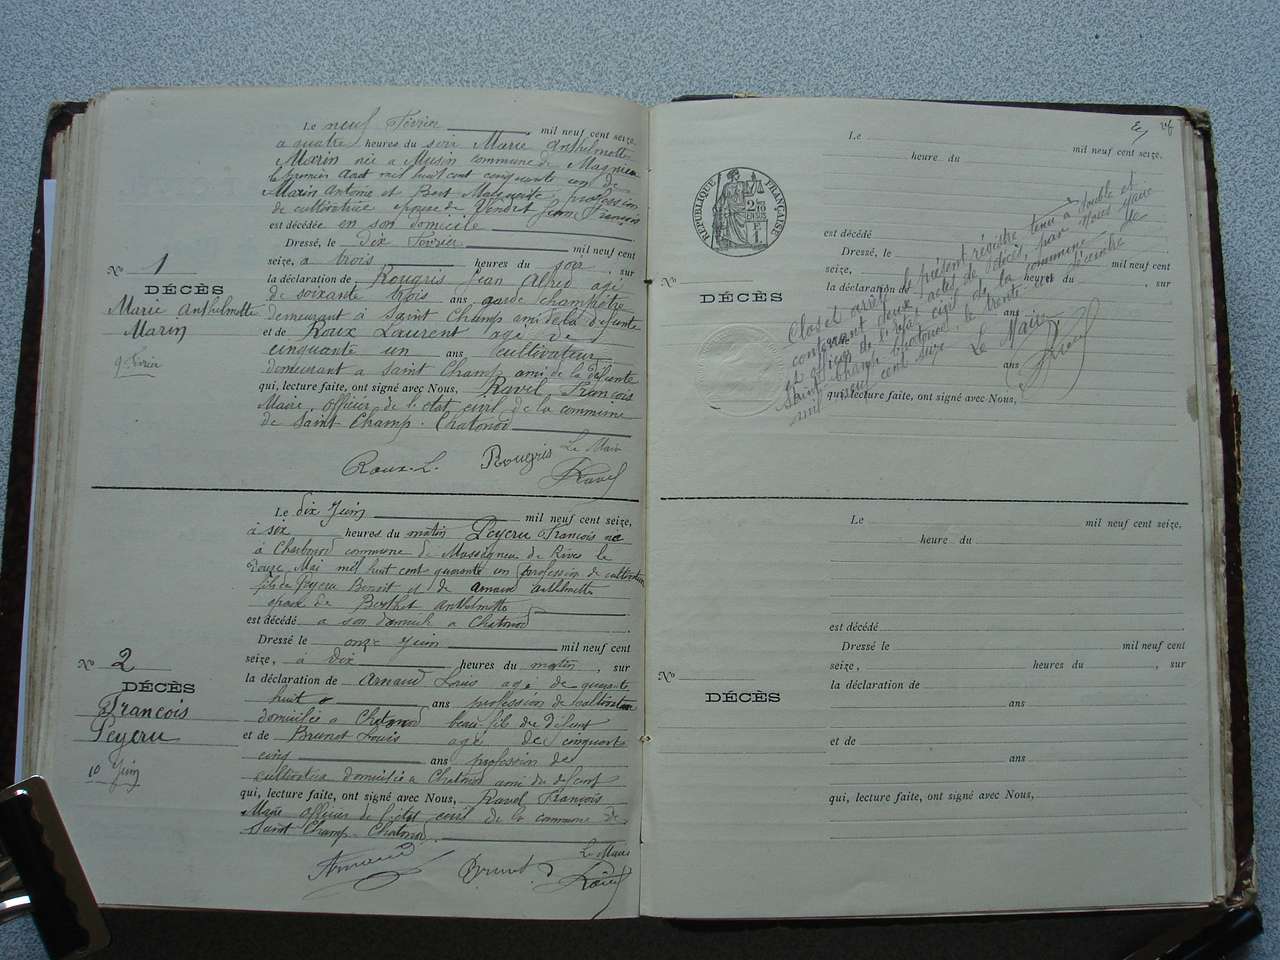 Le neuf Février mil neuf cent seize,
à quatre heures du soir Marie Anthelmette
Marin née à Musin commune de Magnieu
le premier Août mil huit cent cinquante un de
Marin Antoine et Bert Marguerite profession
de cultivatrice épouse de Vendet Jean François
est décédée en son domicile
Dressé, le dix Février mil neuf cent
seize, à trois heures du soir, sur
la déclaration de Rougris Jean Alfred agé
de soixante trois ans garde champêtre
demeurant à Saint Champ ami de la défunte
et de Roux Laurent agé de
cinquante un ans cultivateur
demeurant à Saint Champ ami de la défunte
qui, lecture faite, ont signé avec Nous, Ravel François
Maire, officier de l'état civil de la commune
de Saint-Champ-Chatonod
No 1
DÉCÈS
Marie Anthelmette
Marin
9 Février
Roux. L. Rougris Le Maire
Ravel
Le dix Juin mil neuf cent seize,
à six heures du matin Peyeru François né
à Charbonod commune de Massignieu de Rives le
douze Mai mil huit cent quarante un profession de cultivateur
fils de Peyeru Benoit et de Arnaud Anthelmette
époux de Berthet Anthelmette
est décédé à son domicile à Chatonod
Dressé le onze Juin mil neuf cent
seize, à dix heures du matin, sur
la déclaration de Arnaud Louis agé de quarante
huit ans profession de cultivateur
domicilié à Chatonod beau-fils du défunt
et de Brunet Louis agé de cinquante
cinq ans profession de
cultivateur domicilié à Chatonod ami du défunt
qui, lecture faite, ont signé avec Nous, Ravel François
Maire officier de l'état civil de la commune de
Saint Champ-Chatonod
No 2
DÉCÈS
François
Peyeru
10 Juin
Arnaud Brunet Le Maire
Ravel
Le mil neuf cent seize,
heure du
est décédé
Dressé, le mil neuf cent
seize, heures du , sur
la déclaration de
ans
et de
ans
qui, lecture faite, ont signé avec Nous,
No
DÉCÈS
RÉPUBLIQUE FRANÇAISE
2/10 EN SUS
Clos et arrêté le présent régistre tenu à double et
contenant deux actes de décès, par Nous Maire
et officier de l'état civil de la commune de
Saint Champ Chatonod, le trente un Décembre
mil neuf cent seize
Le Maire
Ravel
Le mil neuf cent seize,
heure du
est décédé
Dressé le mil neuf cent
seize, heures du , sur
la déclaration de
ans
et de
ans
qui, lecture faite, ont signé avec Nous,
No
DÉCÈS